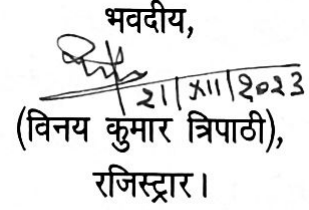 भवदीय,
21/XII/2023
(विनय कुमार त्रिपाठी),
रजिस्ट्रार।